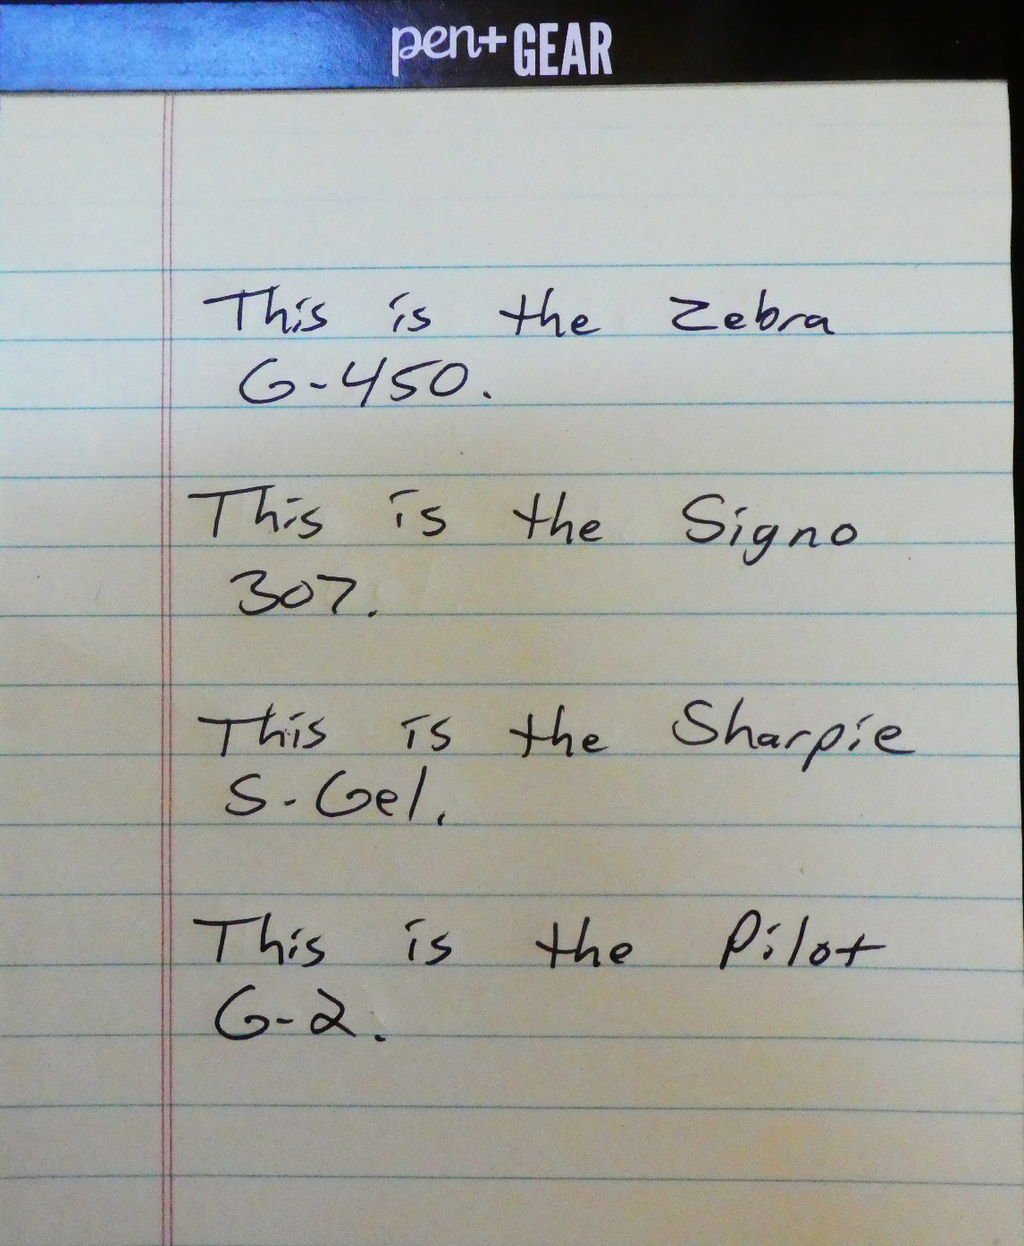 pen+GEAR
This is the Zebra
G-450.
This is the Signo
307.
This is the Sharpie
S-Gel.
This is the Pilot
G-2.